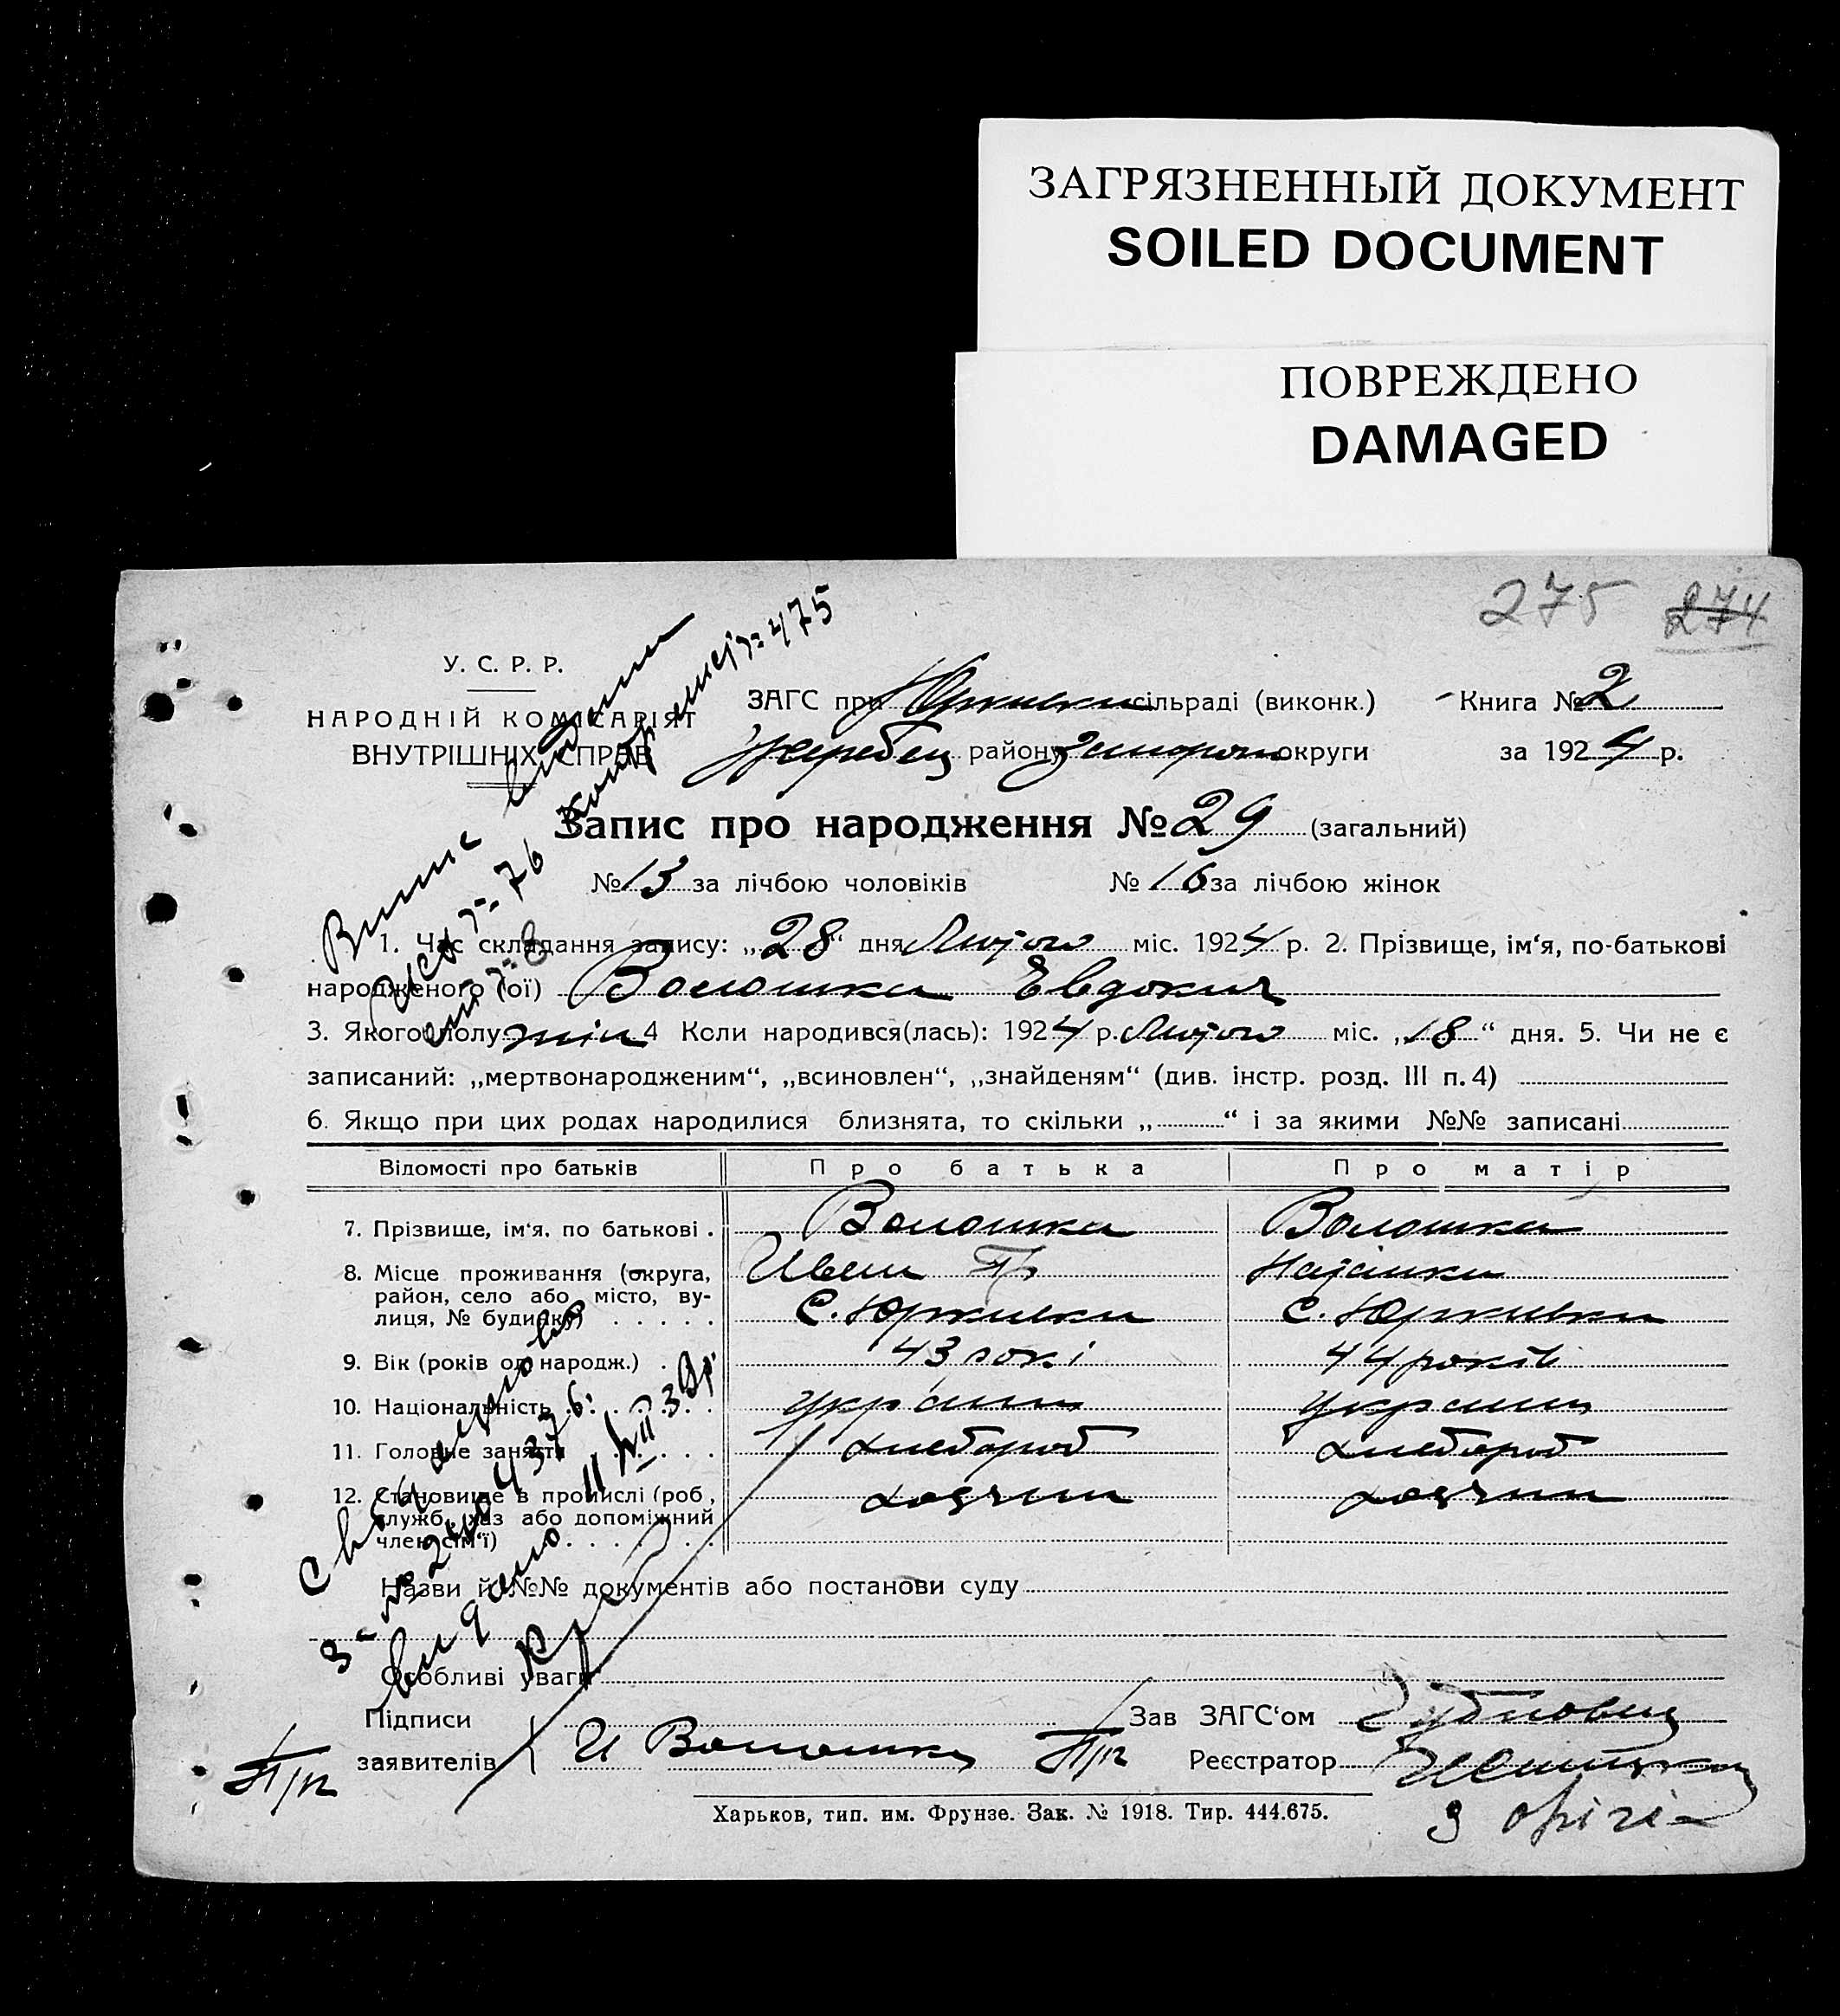 ЗАГРЯЗНЕННЫЙ ДОКУМЕНТ
SOILED DOCUMENT
ПОВРЕЖДЕНО
DAMAGED
275 274
У. С. Р. Р.
НАРОДНІЙ КОМІСАРІЯТ
ВНУТРІШНІХ СПРАВ
ЗАГС при Юркивки сільраді (виконк.) Книга № 2
Жеребец району Запорож округи за 1924 р.
Запис про народження № 29 (загальний)
№ 13 за лічбою чоловіків № 16 за лічбою жінок
1. Час складання запису: „28“ дня Лютого міс. 1924 р. 2. Прізвище, ім‘я, по-батькові
народженого (ої) Волошка Євдокия
3. Якого полу жін 4 Коли народився(лась): 1924 р. Лютого міс. „18“ дня. 5. Чи не є
записаний: „мертвонародженим“, „всиновлен“, „знайденям“ (див. інстр. розд. III п. 4)
6. Якщо при цих родах народилися близнята, то скільки „ “ і за якими №№ записані
Відомості про батьків Про батька Про матір
7. Прізвище, ім‘я, по батькові . Волошка Волошка
8. Місце проживання (округа, Иван Наталка
район, село або місто, ву- с. Юркивка с. Юркивка
лиця, № будинку) . . . . .
9. Вік (років од народж.) . . . 43 рокі 44 років
10. Національність . . . . . . украин украин
11. Головне заняття . . . . . хлебороб хлебороб
12. Становище в промислі (роб., хозяин хозяин
служб., хаз або допоміжний
член сім‘ї) . . . . . . .
Назви й №№ документів або постанови суду
Особливі уваги
Підписи Зав ЗАГС‘ом
заявителів И Волошка Реєстратор
Харьков, тип. им. Фрунзе. Зак. № 1918. Тир. 444.675.